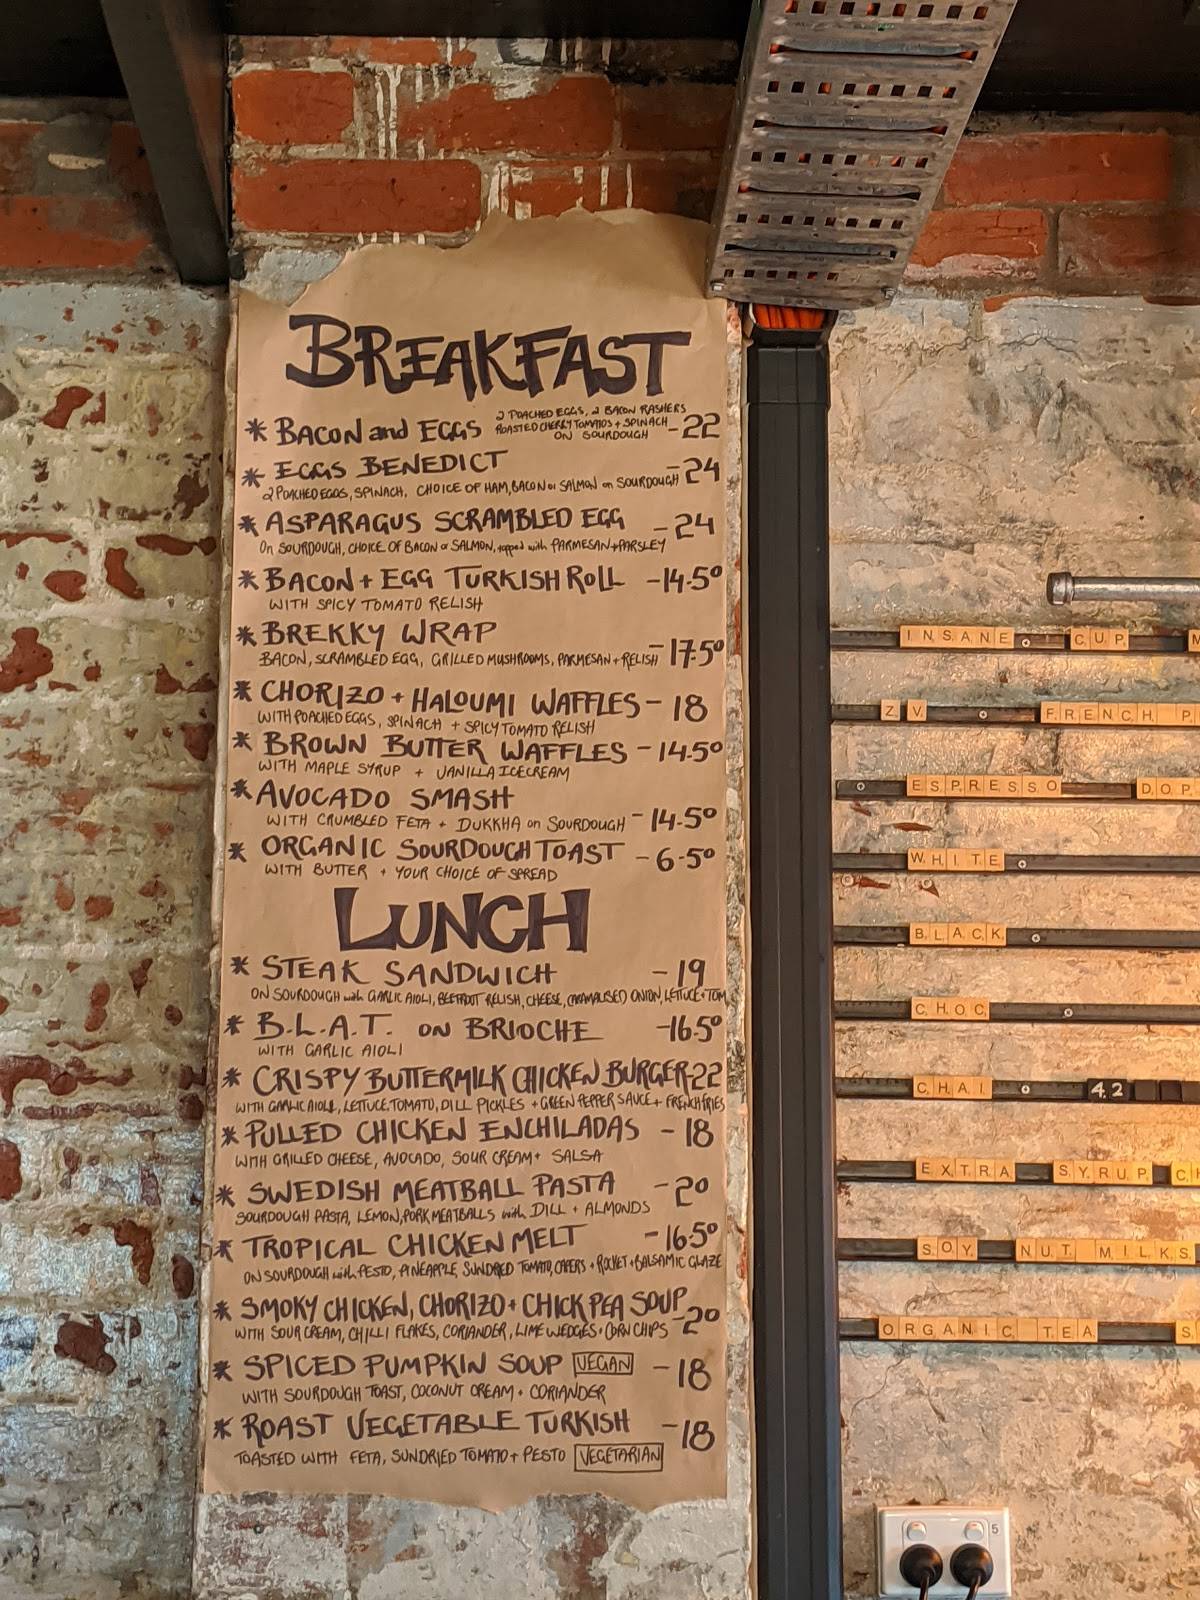 BREAKFAST
* BACON and EGGS 2 POACHED EGGS, 2 BACON RASHERS
ROASTED CHERRY TOMATOS + SPINACH - 22
ON SOURDOUGH
* EGGS BENEDICT - 24
2 POACHED EGGS, SPINACH, CHOICE OF HAM, BACON or SALMON on SOURDOUGH
* ASPARAGUS SCRAMBLED EGG - 24
On SOURDOUGH, CHOICE OF BACON or SALMON, topped with PARMESAN + PARSLEY
* BACON + EGG TURKISH ROLL - 14.50
WITH SPICY TOMATO RELISH
* BREKKY WRAP - 17.50
BACON, SCRAMBLED EGG, GRILLED MUSHROOMS, PARMESAN + RELISH
* CHORIZO + HALOUMI WAFFLES - 18
WITH POACHED EGGS, SPINACH + SPICY TOMATO RELISH
* BROWN BUTTER WAFFLES - 14.50
WITH MAPLE SYRUP + VANILLA ICECREAM
* AVOCADO SMASH
WITH CRUMBLED FETA + DUKKHA on SOURDOUGH - 14.50
* ORGANIC SOURDOUGH TOAST - 6.50
WITH BUTTER + YOUR CHOICE OF SPREAD
LUNCH
* STEAK SANDWICH - 19
ON SOURDOUGH with GARLIC AIOLI, BEETROOT RELISH, CHEESE, CARAMALISED ONION, LETTUCE + TOM
* B.L.A.T. ON BRIOCHE - 16.50
WITH GARLIC AIOLI
* CRISPY BUTTERMILK CHICKEN BURGER - 22
WITH GARLIC AIOLI, LETTUCE, TOMATO, DILL PICKLES + GREEN PEPPER SAUCE + FRENCH FRIES
* PULLED CHICKEN ENCHILADAS - 18
WITH GRILLED CHEESE, AVOCADO, SOUR CREAM + SALSA
* SWEDISH MEATBALL PASTA - 20
SOURDOUGH PASTA, LEMON, PORK MEATBALLS with DILL + ALMONDS
* TROPICAL CHICKEN MELT - 16.50
ON SOURDOUGH with PESTO, PINEAPPLE, SUNDRIED TOMATO, CAPERS + ROCKET + BALSAMIC GLAZE
* SMOKY CHICKEN, CHORIZO + CHICK PEA SOUP - 20
WITH SOUR CREAM, CHILLI FLAKES, CORIANDER, LIME WEDGES + CORN CHIPS
* SPICED PUMPKIN SOUP VEGAN - 18
WITH SOURDOUGH TOAST, COCONUT CREAM + CORIANDER
* ROAST VEGETABLE TURKISH - 18
TOASTED WITH FETA, SUNDRIED TOMATO + PESTO VEGETARIAN
INSANE CUP M
Z.V. FRENCH P
ESPRESSO DOP
WHITE
BLACK
CHOC
CHAI 42
EXTRA SYRUP C
SOY NUT MILKS
ORGANIC TEA S
5